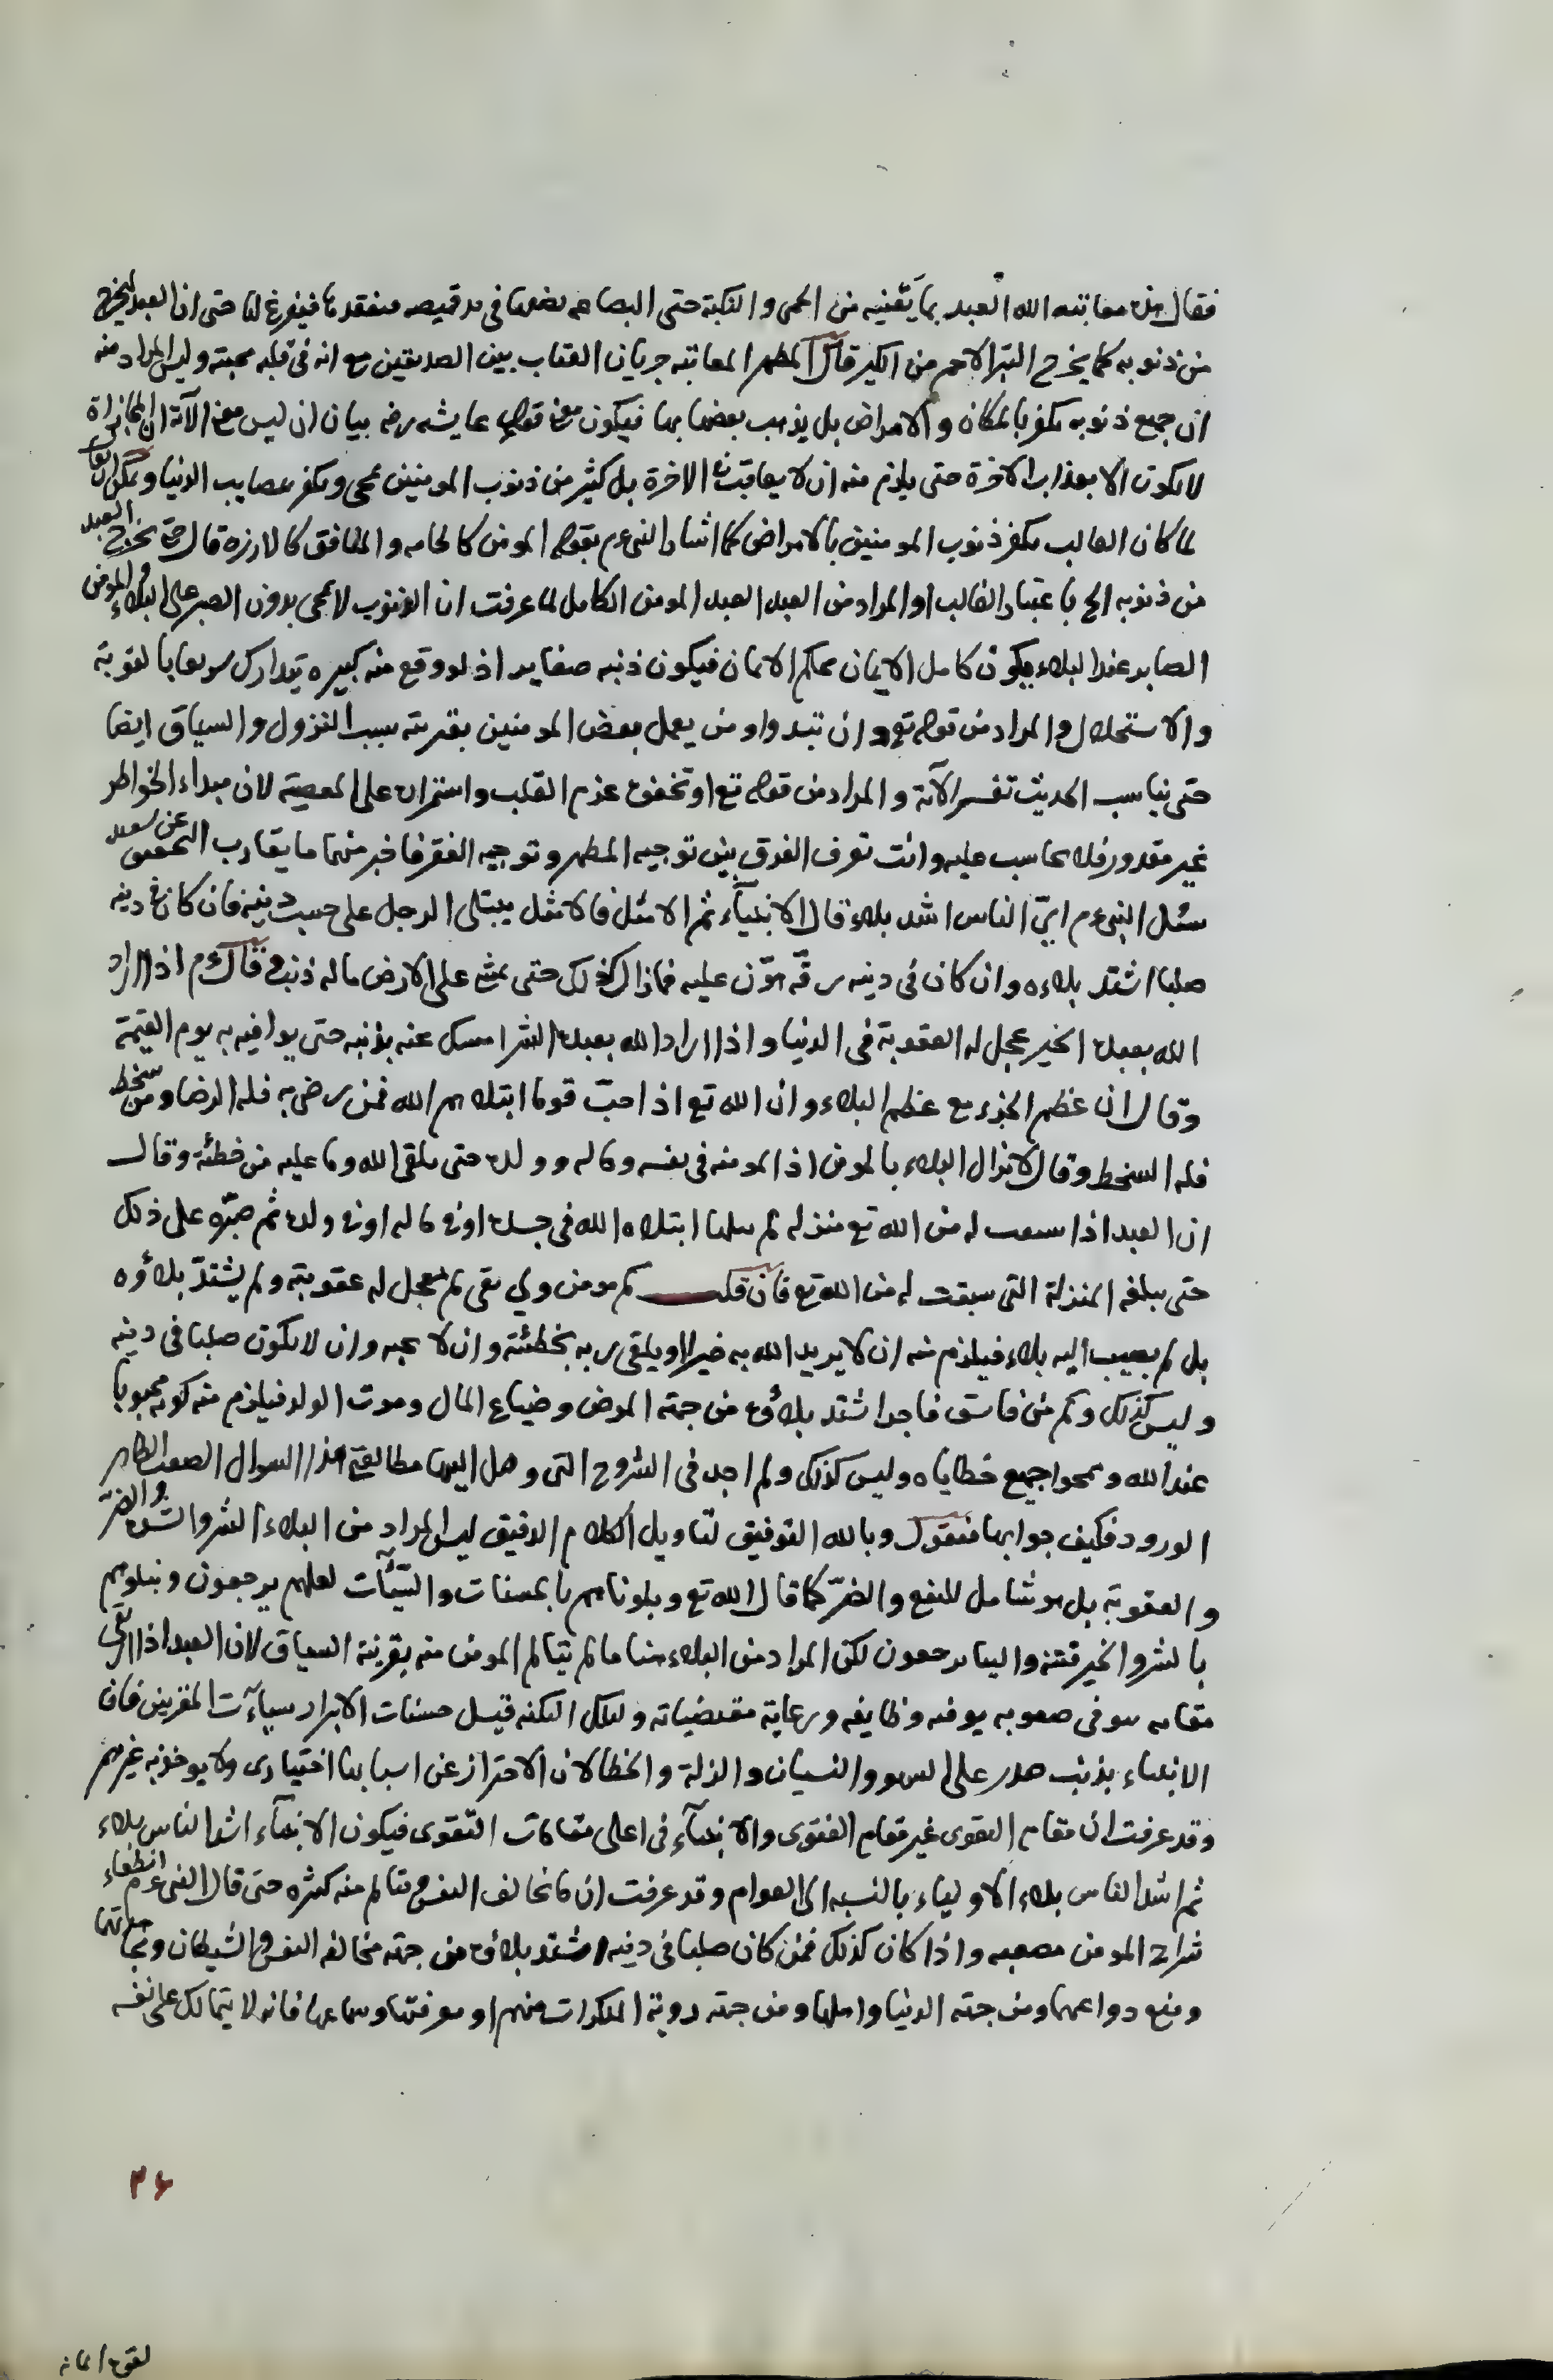 فقال هذه معاتبه الله العبد بما يصيبه من الحمى والنكبة حتى البضاعه يضعها في يد قميصه فيفقدها فيفزع لها حتى ان العبد ليخرج
من ذنوبه كما يخرج التبر الاحمر من الكير قال المطهر المعاتبه جريان العتاب بين الصديقين مع انه في قلبه محبته وليس المراد منه
ان جميع ذنوبه يكفر بالمكاره والامراض بل يذهب بعضها بها فيكون معنى قول عايشه رضه بيان ان ليس معنى الآية ان المجازاة
لا يكون الا بعذاب الاخرة حتى يلزم منه ان لا يعاقب في الاخرة بل كثير من ذنوب المومنين يمحى ويكفر بمصايب الدنيا ويمكن ان يقال
لما كان الغالب يكفر ذنوب المومنين بالامراض كما اشار النبي عم بقوله المومن كالخامه والمنافق كالارزه قال حتى يخرج العبد
من ذنوبه الخ باعتبار الغالب او المراد من العبد العبد المومن الكامل لما عرفت ان الذنوب لا يمحى بدون الصبر على البلاء والمومن
الصابر عند البلاء يكون كامل الايمان محكم الايمان فيكون ذنبه صغاير اذ لو وقع منه كبيره يتدارك سريعا بالتوبة
والاستحلال والمراد من قوله تع وان تبدوا ومن يعمل بعض المومنين بقرينة سبب النزول والسياق ايضا
حتى يناسب الحديث تفسير الآية والمراد من قوله تع او تخفوه عزم القلب واستمراره على المعصية لان مبداء الخواطر
غير مقدور فلا يحاسب عليه وانت تعرف الفرق بين توجيه المطهر وتوجيه الفقر فاخبر منهما ما يقارب التحقيق عن سعد
سئل النبي عم اي الناس اشد بلاء قال الانبيآء ثم الامثل فالامثل يبتلى الرجل على حسب دينه فان كان في دينه
صلبا اشتد بلاءه وان كان في دينه رقّه هوّن عليه فما زال كذلك حتى يمشى على الارض ماله ذنب وقال عم اذا اراد
الله بعبده الخير عجل له العقوبة في الدنيا واذا اراد الله بعبده الشر امسك عنه بذنبه حتى يوافيه به يوم القيمة
وقال ان عظم الجزاء مع عظم البلاء وان الله تع اذا احبّ قوما ابتلاهم الله فمن رضي به فله الرضا ومن سخط
فله السخط وقال لا يزال البلاء بالمومن او المومنه في نفسه وماله وولده حتى يلقى الله وما عليه من خطئة وقال
ان العبد اذا سبقت له من الله تع منزله لم يبلغها ابتلاه الله في جسده او في ماله او في ولده ثم صبّره على ذلك
حتى يبلغه المنزلة التي سبقت له من الله تع فان قلت كم مومن ولي تقى لم يعجل له عقوبته ولم يشتدّ بلاؤه
بل لم يصب اليه بلاء فيلزم منه ان لا يريد الله به خيرا او يلقى ربه بخطئته وان لا يحبه وان لا يكون صلبا في دينه
وليس كذلك وكم من فاسق فاجر اشتد بلاؤه من جهة المرض وضياع المال وموت الولد فيلزم منه كونه محبوبا
عند الله ويمحوا جميع خطاياه وليس كذلك ولم اجد في الشروح التي وصل اليها مطالعتي هذا السوال الصعب الظاهر
الورود فكيف جوابها فنقول وبالله التوفيق لتاويل الكلام الدقيق ليس المراد من البلاء الشر والشدة والضرّ
والعقوبة بل هو شامل للنفع والضرّ كما قال الله تع وبلوناهم بالحسنات والسّيّئآت لعلهم يرجعون ونبلوهم
بالشر والخير فتنة والينا يرجعون لكن المراد من البلاء هنا ما لم يتالم المومن منه بقرينة السياق لان العبد اذا ارتقى
مقامه هو في صعوبه يوفيه وظايفه ورعاية مقتضياته ولتلك النكته قيل حسنات الابرار سيآت المقربين فان
الانبياء بذنب صدر على السهو والنسيان والزلة والخطا لان الاحتراز عن اسبابها اختيارى ولا يوخذ به غيرهم
وقد عرفت ان مقام التقوى غير مقام الفتوى والانبيآء في اعلى مقامات التقوى فيكون الانبيآء اشد الناس بلاء
ثم اشد الناس بلاء الاولياء بالنسبه الى العوام وقد عرفت ان ما يخالف النفس يتالم منه كثيره حتى قال النبي عم انطفاء
سراج المومن مصيبه واذا كان كذلك فمن كان صلبا في دينه اشتد بلاؤه من جهة مخالفه النفس والشيطان
ومنع دواعيهما ومن جهته الدنيا واهلها ومن جهته روية المنكرات منهم او معرفتها وسماعها فانه لا يتمالك على نفسه
٣٦
لقوة ايمانه